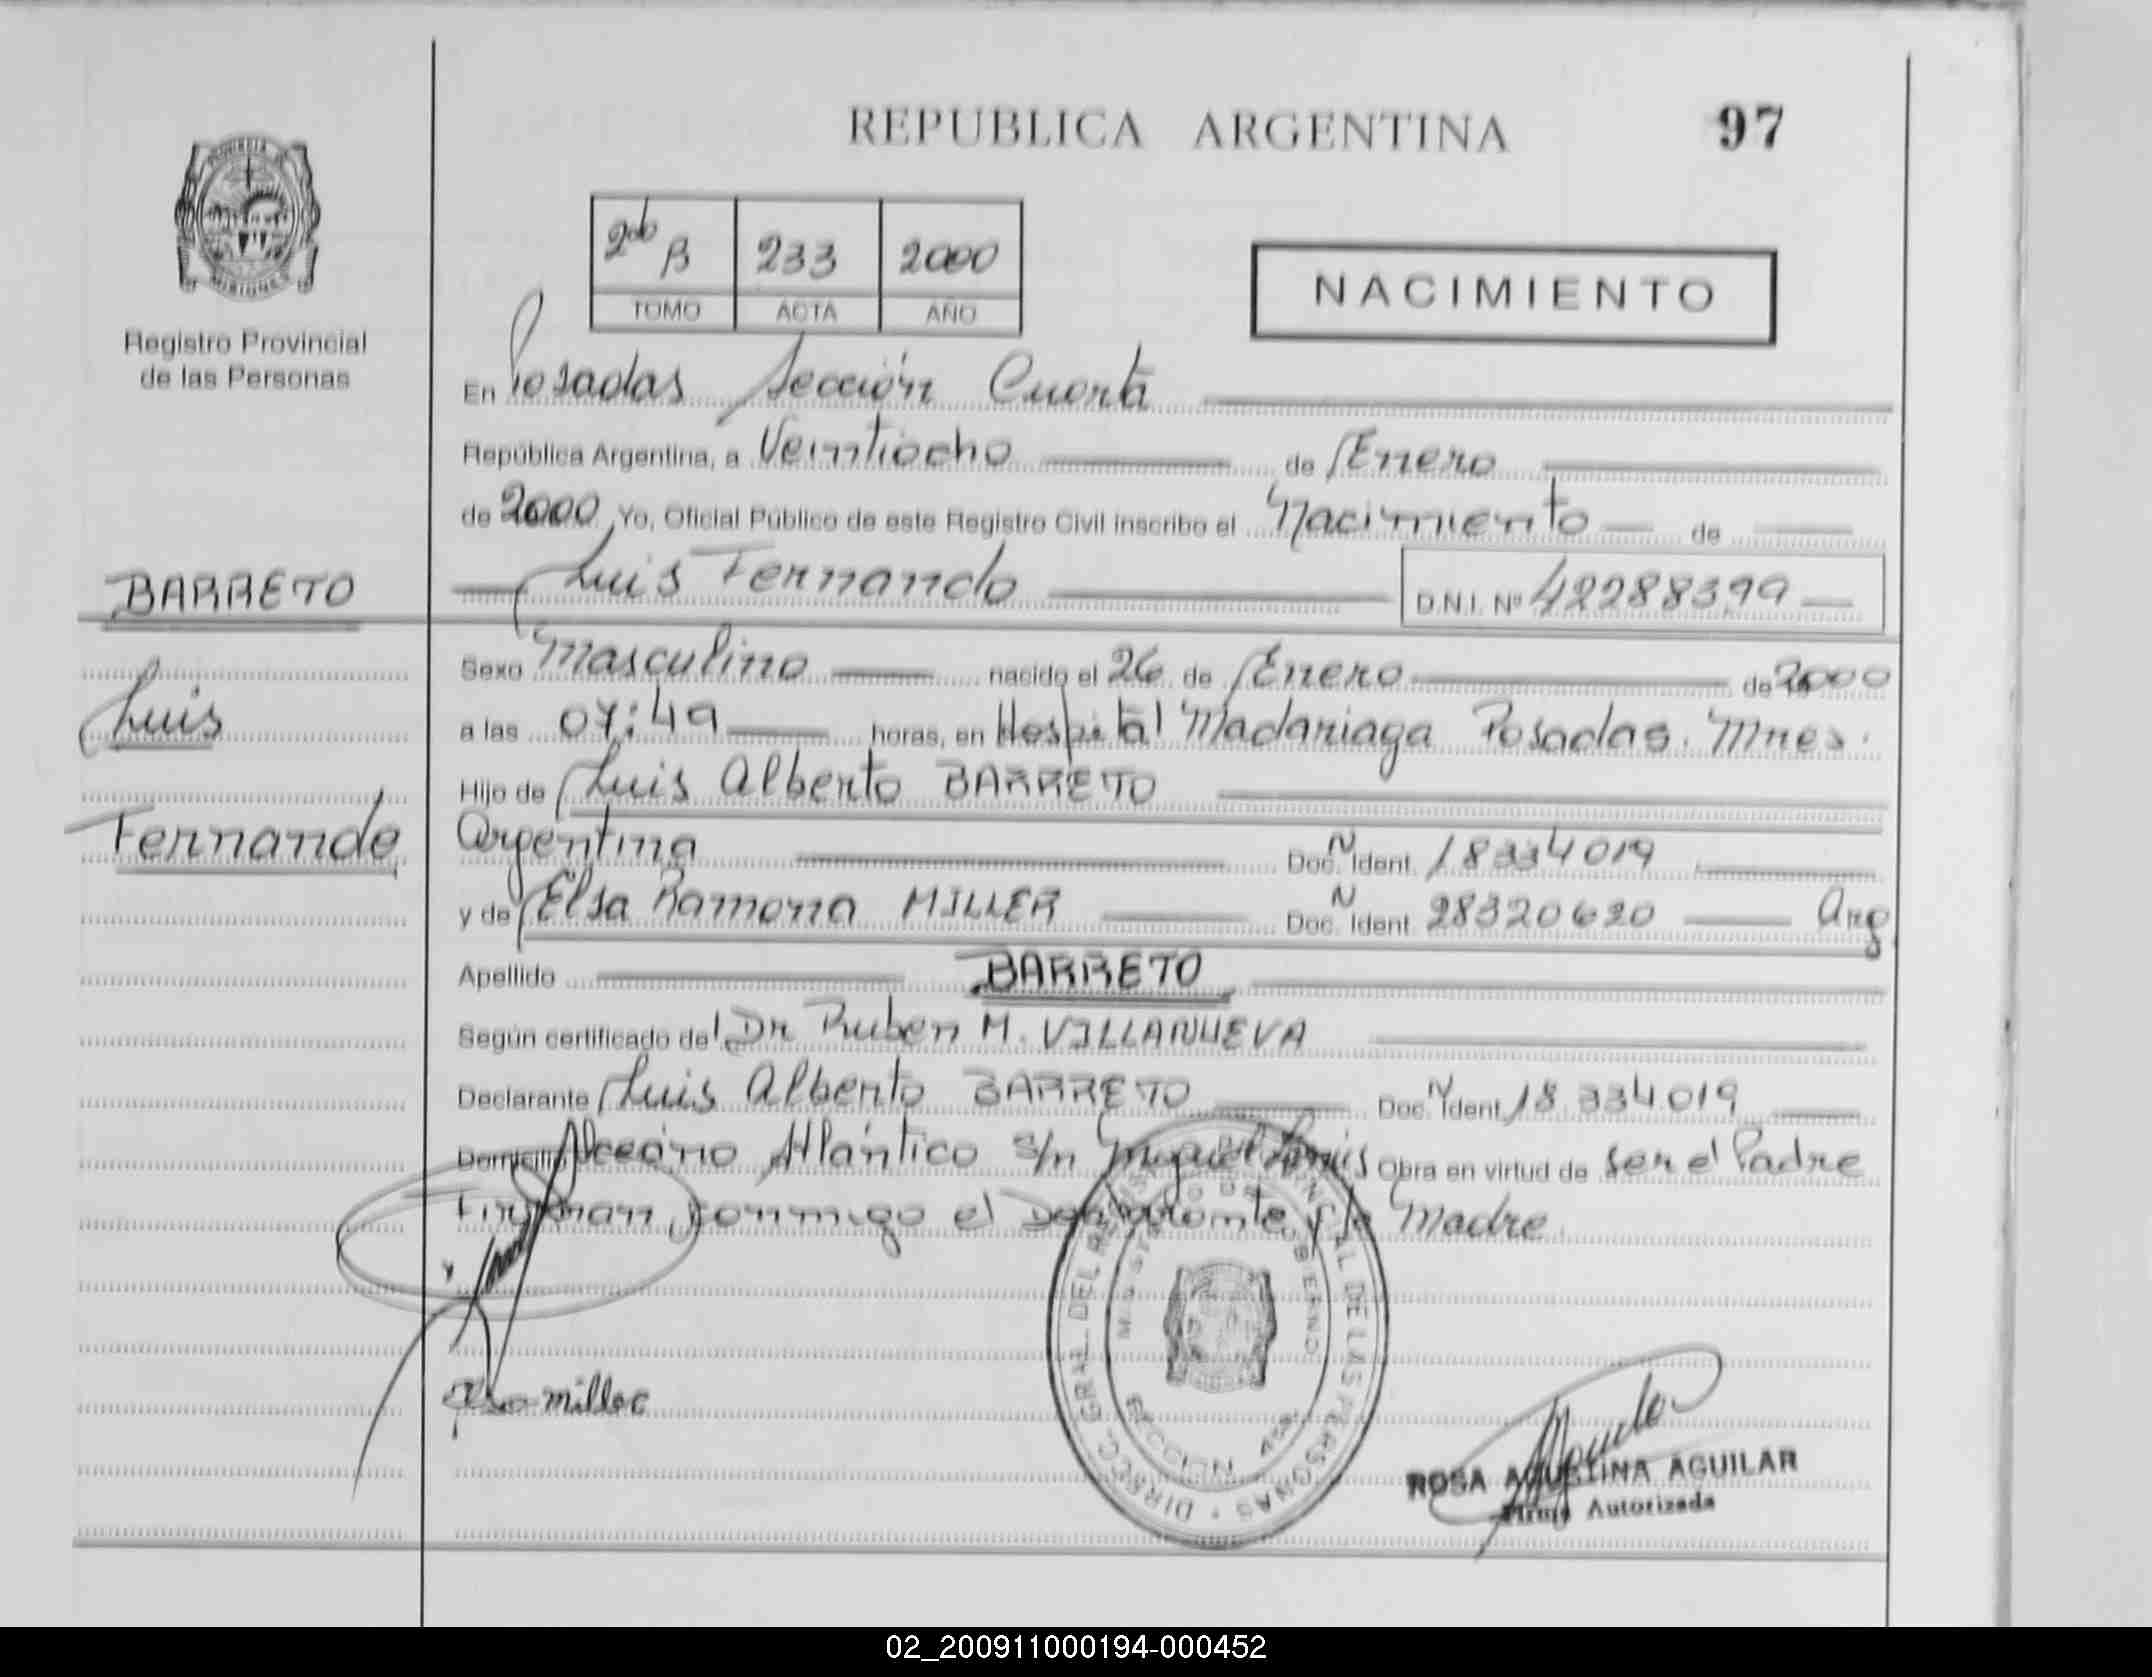 REPUBLICA ARGENTINA
97
PROVINCIA DE
MISIONES
Registro Provincial
de las Personas
2do B 233 2000
TOMO ACTA AÑO
NACIMIENTO
En Posadas Sección Cuarta
República Argentina, a Veintiocho de Enero
de 2000 Yo, Oficial Público de este Registro Civil inscribo el Nacimiento de
BARRETO
Luis Fernando D.N.I. Nº 42288399
Sexo Masculino nacido el 26 de Enero de 2000
Luis
a las 07:49 horas, en Hospital Madariaga Posadas. Mnes.
Hijo de Luis Alberto BARRETO
Fernando
Argentina Doc. N Ident. 18334019
y de Elsa Ramona MILLER Doc. N Ident. 28320620 Arg
Apellido BARRETO
Según certificado del Dr Ruben M. VILLANUEVA
Declarante Luis Alberto BARRETO Doc. N Ident. 18.334.019
Domicilio Oceáno Atlántico s/n Miguel Lanús Obra en virtud de ser el Padre
Firman conmigo el Declarante y la Madre
DIRECC. GRAL. DEL REGISTRO PROVINCIAL DE LAS PERSONAS
MINISTERIO DE GOBIERNO
SECCION 4ta
Elsa miller
ROSA AGUSTINA AGUILAR
Firma Autorizada
02_200911000194-000452